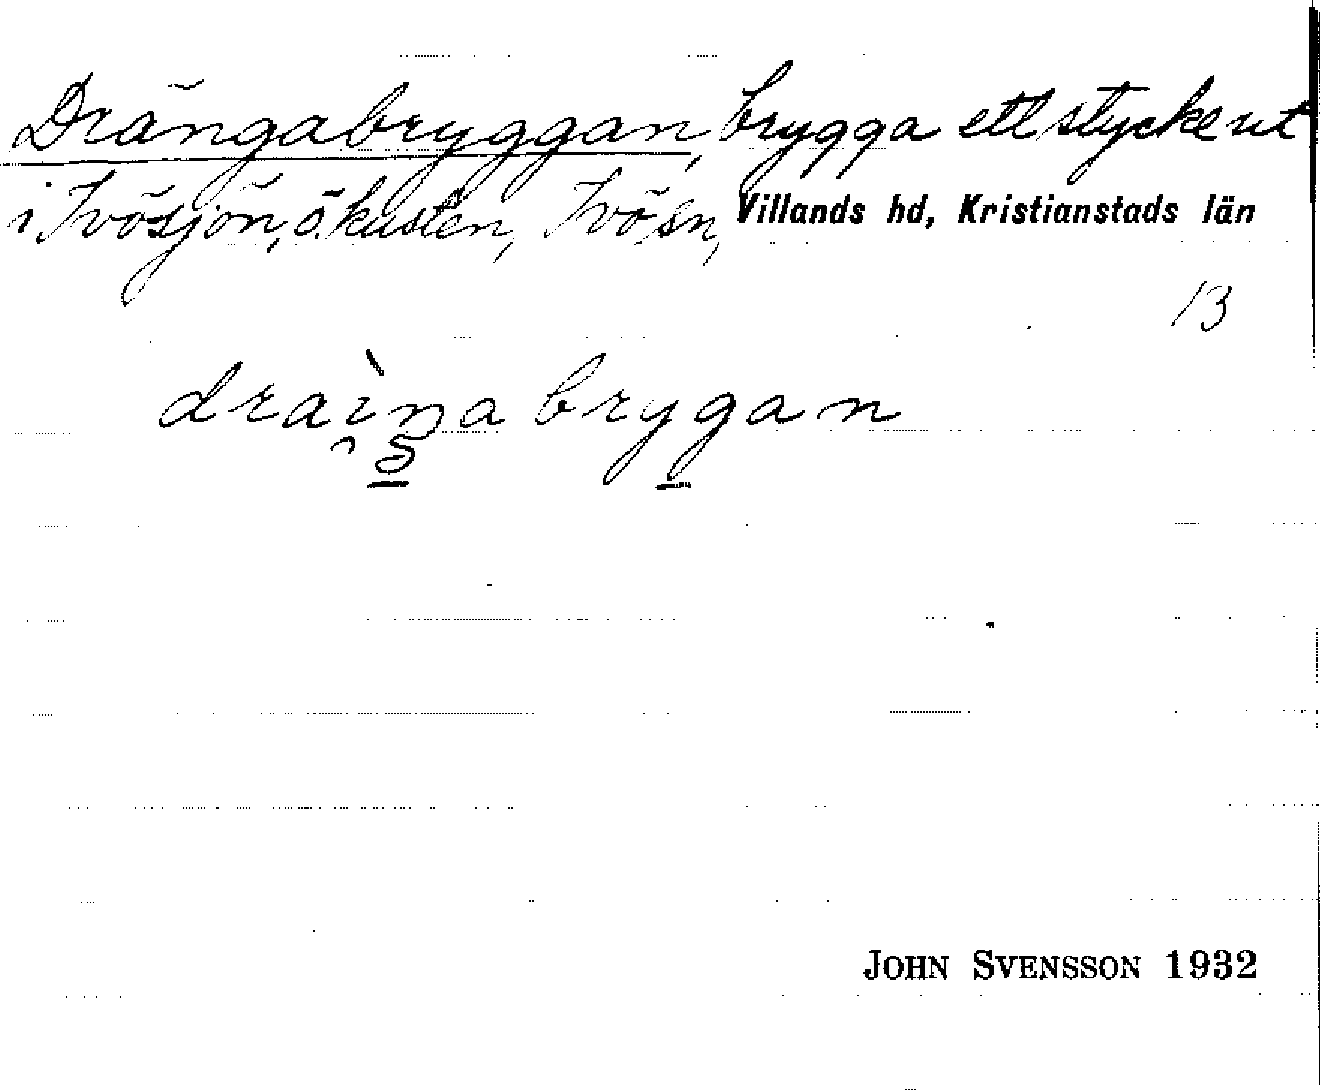 Drängabryggan, brygga ett stycke ut
i Ivösjön, ö. kusten, Ivö sn, Villands hd, Kristianstads län
13
JOHN SVENSSON 1932